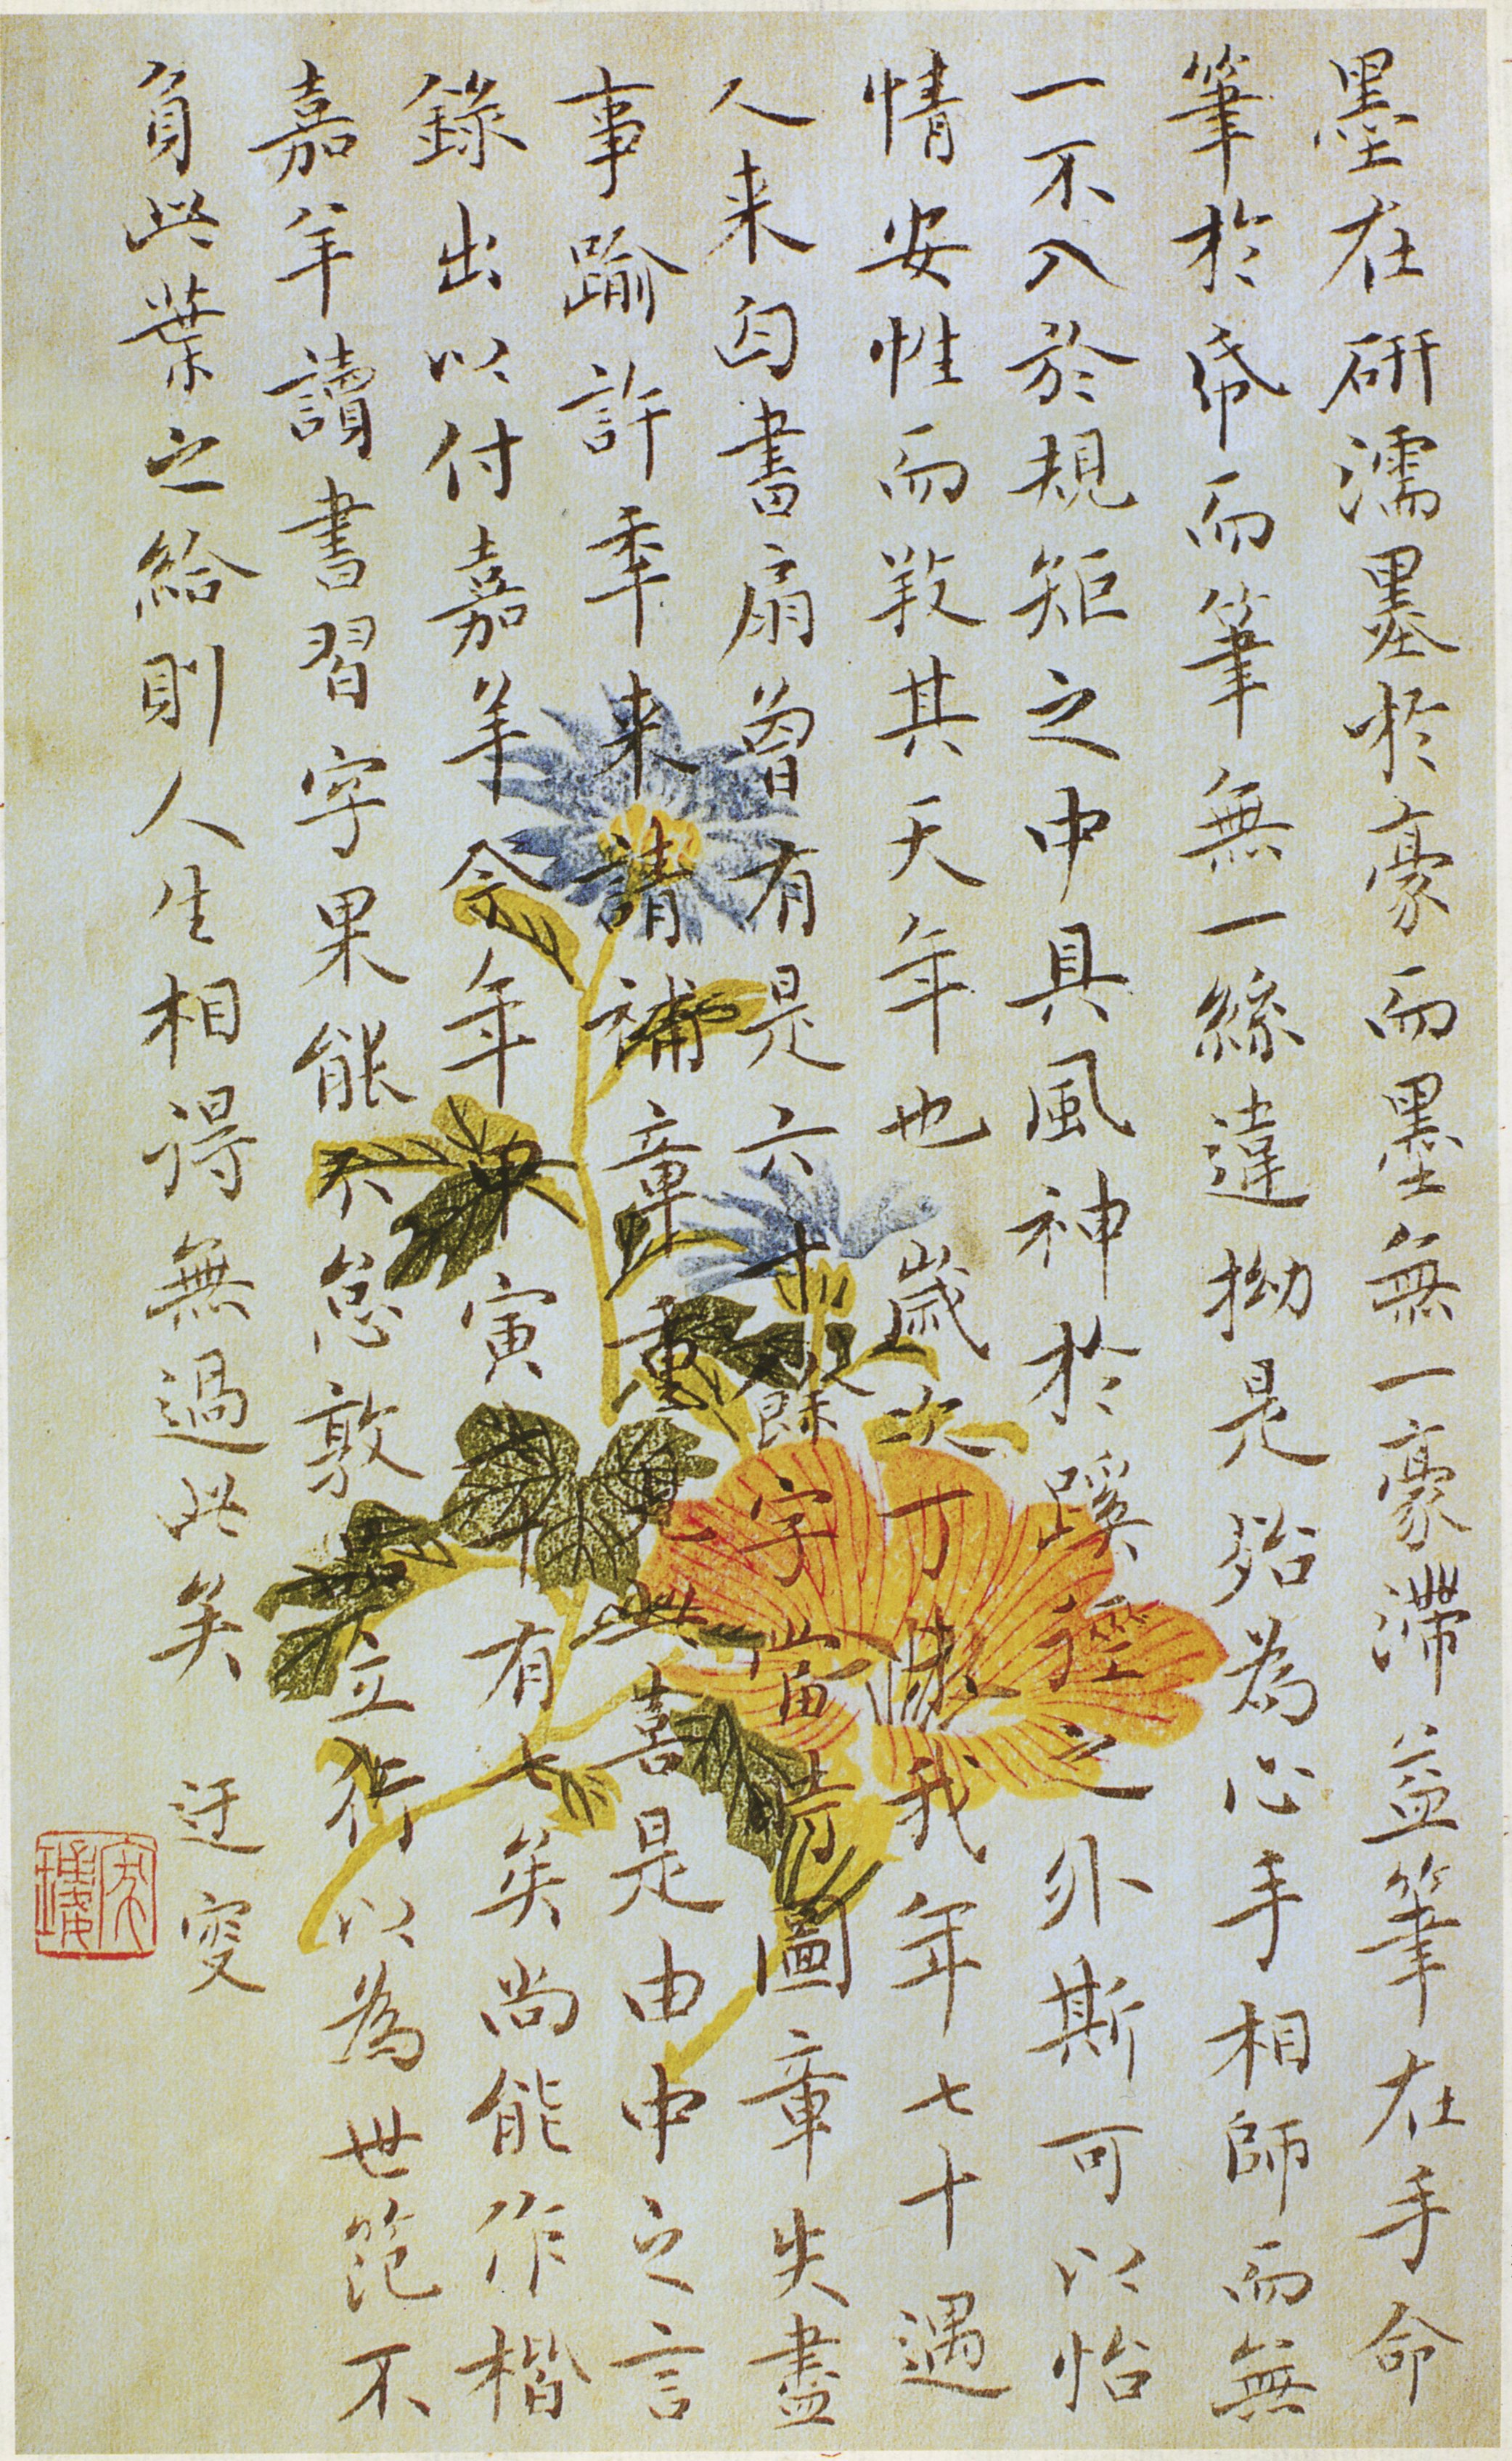 墨在研濡墨於豪而墨無一豪滯益筆在手命
筆於帋而筆無一絲違拗是殆為心手相師而無
一不入於規矩之中具風神於蹊徑之外斯可以怡
情安性而養其天年也歲次丁未我年七十遇
人来匄書扇曾有是六十餘字當时圖章失盡
事踰許秊来請補章重見此喜是由中之言
錄出以付嘉羊今年甲寅七十有七矣尚能作楷
嘉羊讀書習字果能不怠敦品立行以為世范不
負此葉之給則人生相得無過此矣 迂叟